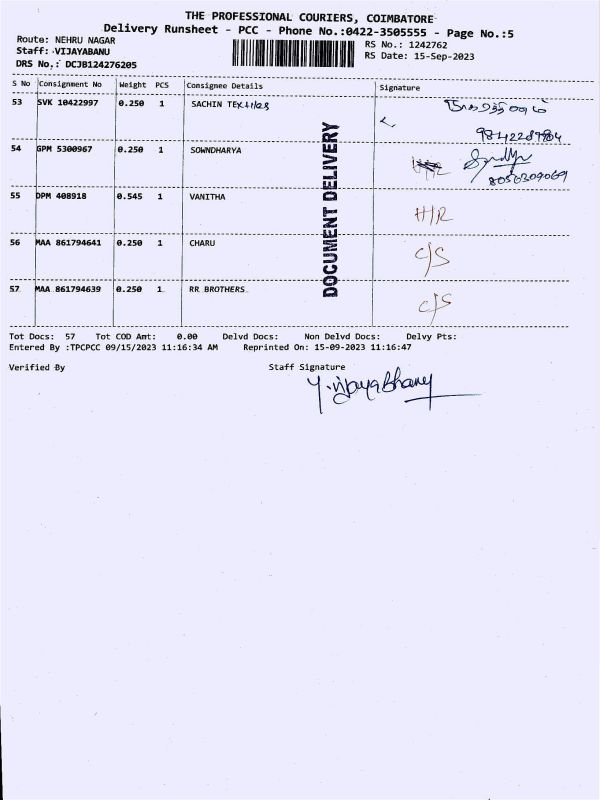 THE PROFESSIONAL COURIERS, COIMBATORE
Delivery Runsheet - PCC - Phone No.:0422-3505555 - Page No.:5
Route: NEHRU NAGAR
Staff: VIJAYABANU
DRS No.: DCJB124276205
RS No.: 1242762
RS Date: 15-Sep-2023
S No Consignment No Weight PCS Consignee Details Signature
53 SVK 10422997 0.250 1 SACHIN TEXtiles
54 GPM 5300967 0.250 1 SOWNDHARYA
8056309069
55 DPM 408918 0.545 1 VANITHA H/R
56 MAA 861794641 0.250 1 CHARU C/S
57 MAA 861794639 0.250 1 RR BROTHERS C/S
DOCUMENT DELIVERY
Tot Docs: 57 Tot COD Amt: 0.00 Delvd Docs: Non Delvd Docs: Delvy Pts:
Entered By :TPCPCC 09/15/2023 11:16:34 AM Reprinted On: 15-09-2023 11:16:47
Verified By Staff Signature
Y.vijayabhany